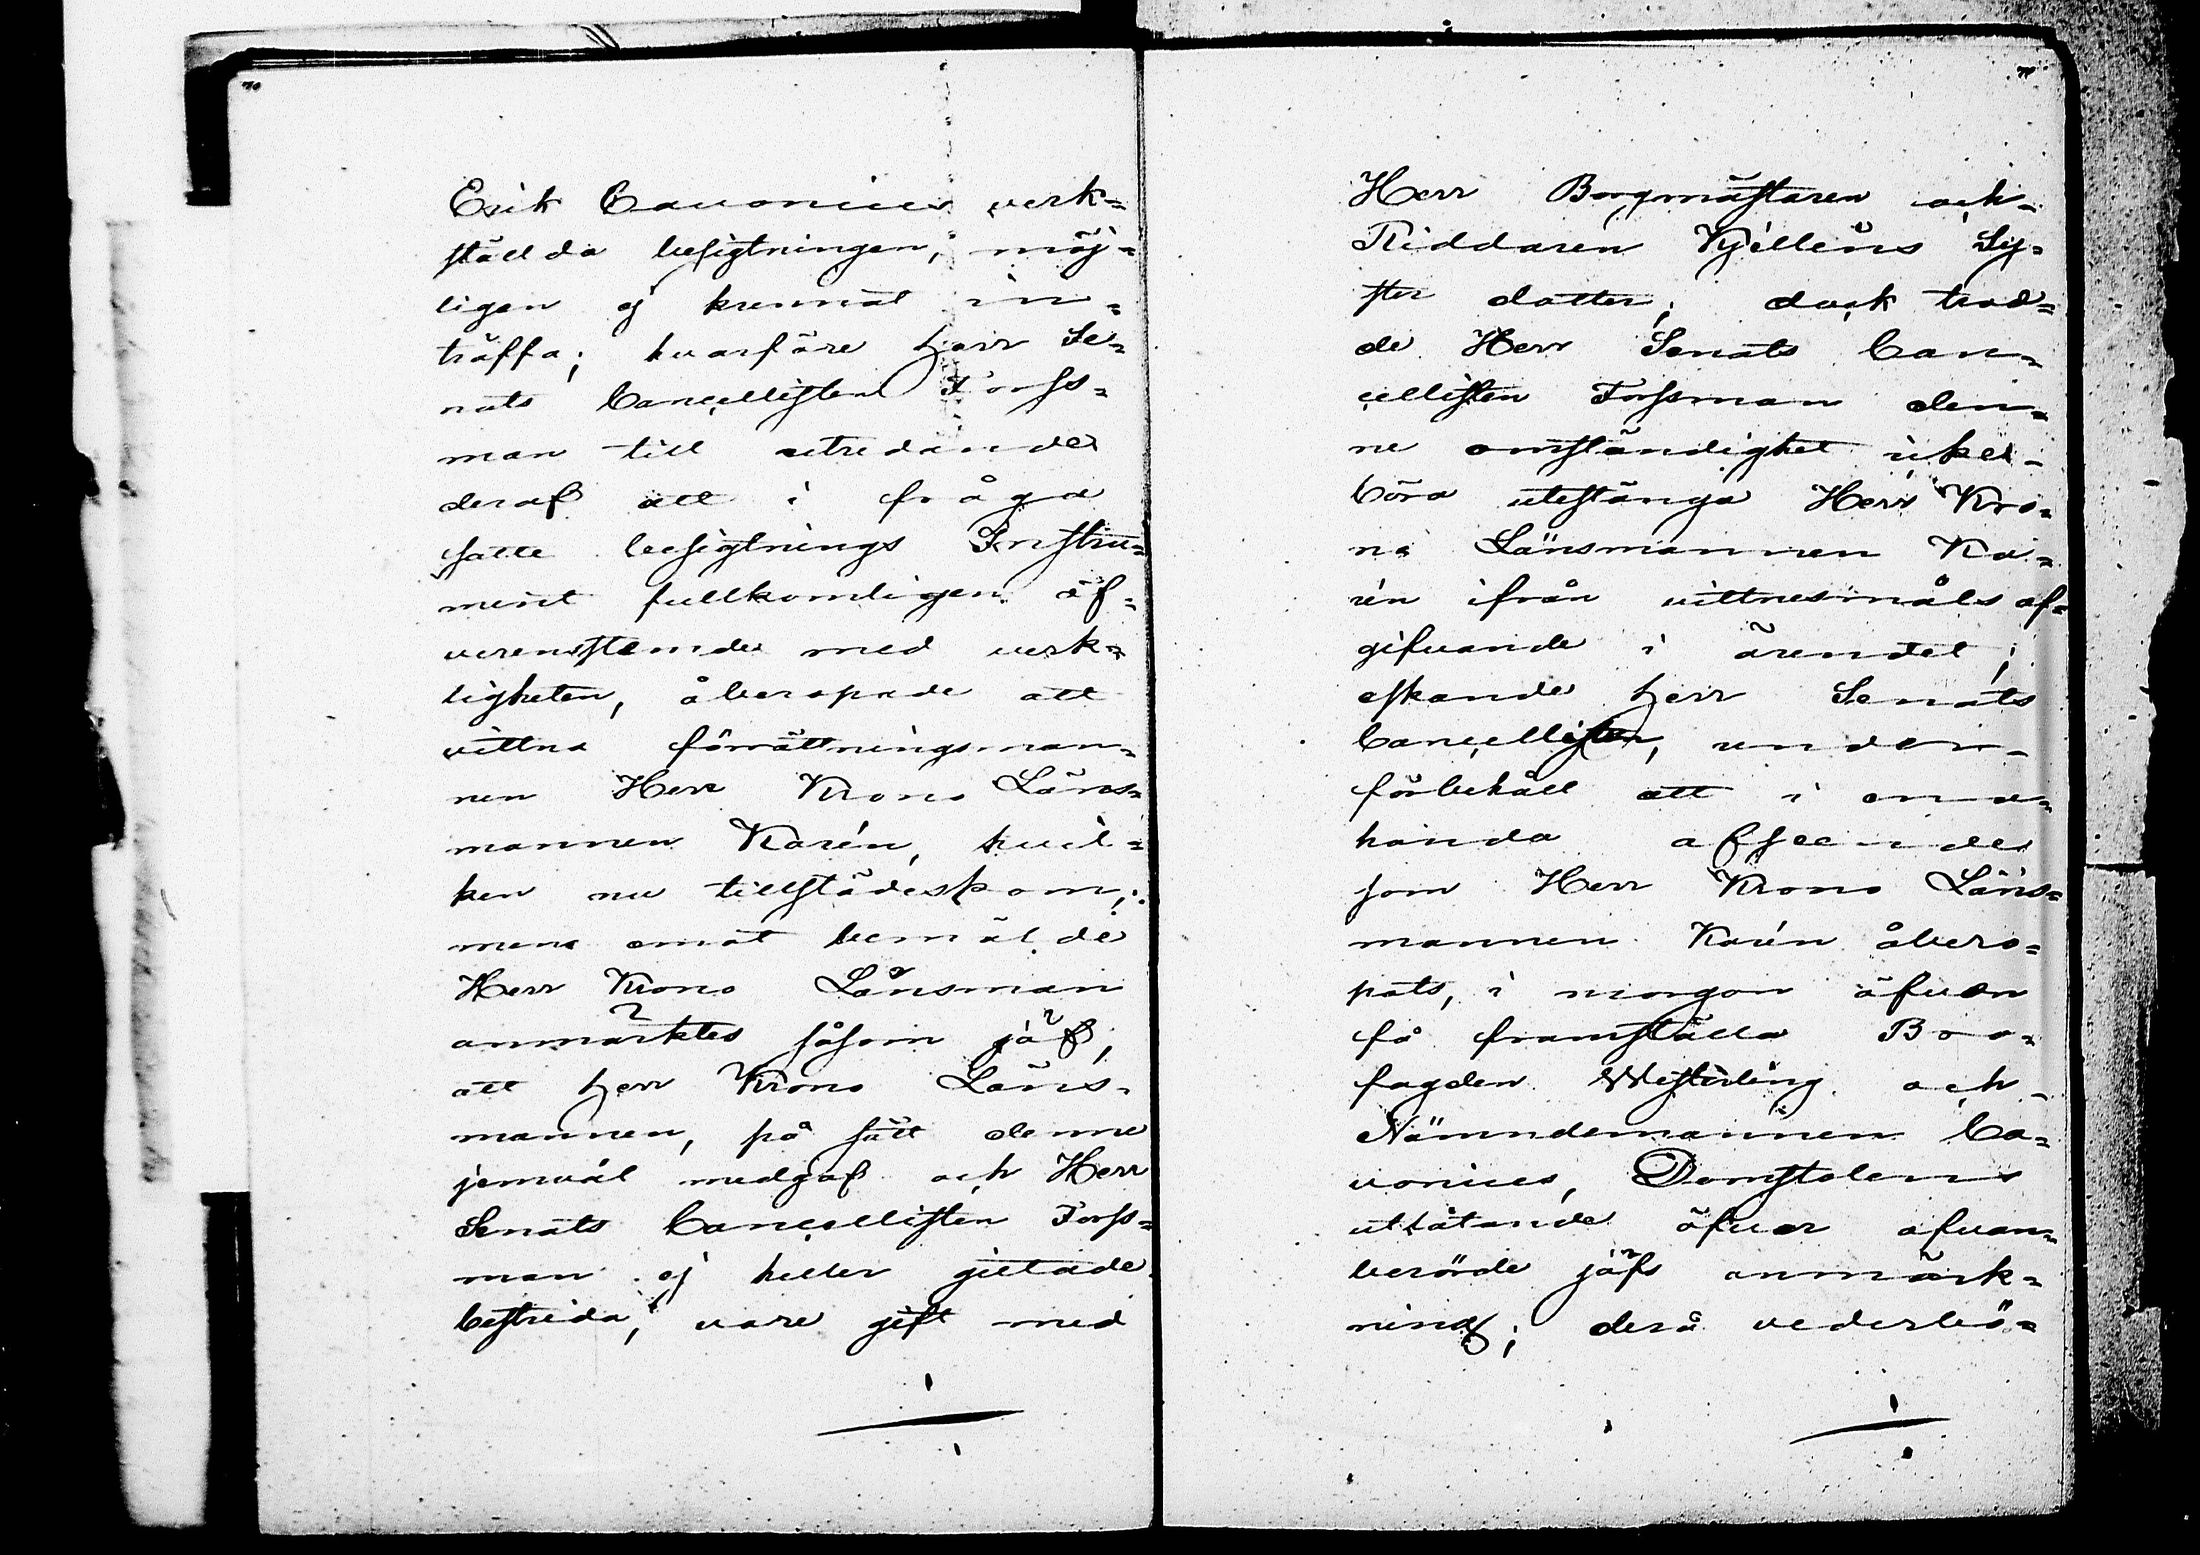 Erik Cavonius verk=
ställda besigtningen, möj=
ligen ej kunnat in=
träffa; hvarföre herr Se=
nats Cancellisten Forss=
man till utredande
deraf att i fråga
satte besigtnings Instru=
ment fullkomligen öf=
verensstemde med verk=
ligheten, åberopade att
vittna förrättningsman=
nen Herr Krono Läns=
mannen Karén, hvil=
ken nu tillstädeskom;
mens emot bemälde
Herr Krono Länsman
anmärktes såsom jäf,
att herr Krono Läns=
mannen, på sätt denne
jemväl medgaf och Herr
Senats Cancellisten Forss=
man ej heller gittade
bestrida, vore gift med
Herr Borgmästaren och
Riddaren Kjelléns Sy=
ster dotter; dock trod=
de Herr Senats Can=
cellisten Forssman den=
ne omständighet icke
böra utestänga Herr Kro=
no Länsmannen Ka=
rén ifrån vittnesmåls af=
gifvande i ärendet;
eskande herr Senats
Cancellisten, under
förbehåll att i ena=
handa afseende
som Herr Krono Läns=
mannen Karén åbero=
pats, i morgon äfven
få framställa Bro=
fogden Westerling och
Nämndemannen Ca=
vonius, Domstolens
utlåtande öfver ofvan=
berörde jäfs anmärk=
ning; derå vederbö=